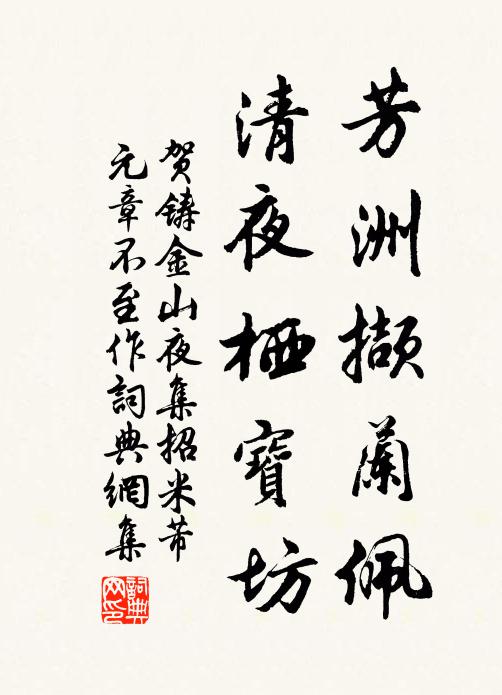 芳洲擷蘭佩
清夜栖寶坊
賀鑄金山夜集招米芾
元章不至作詞典網集
詞典网印